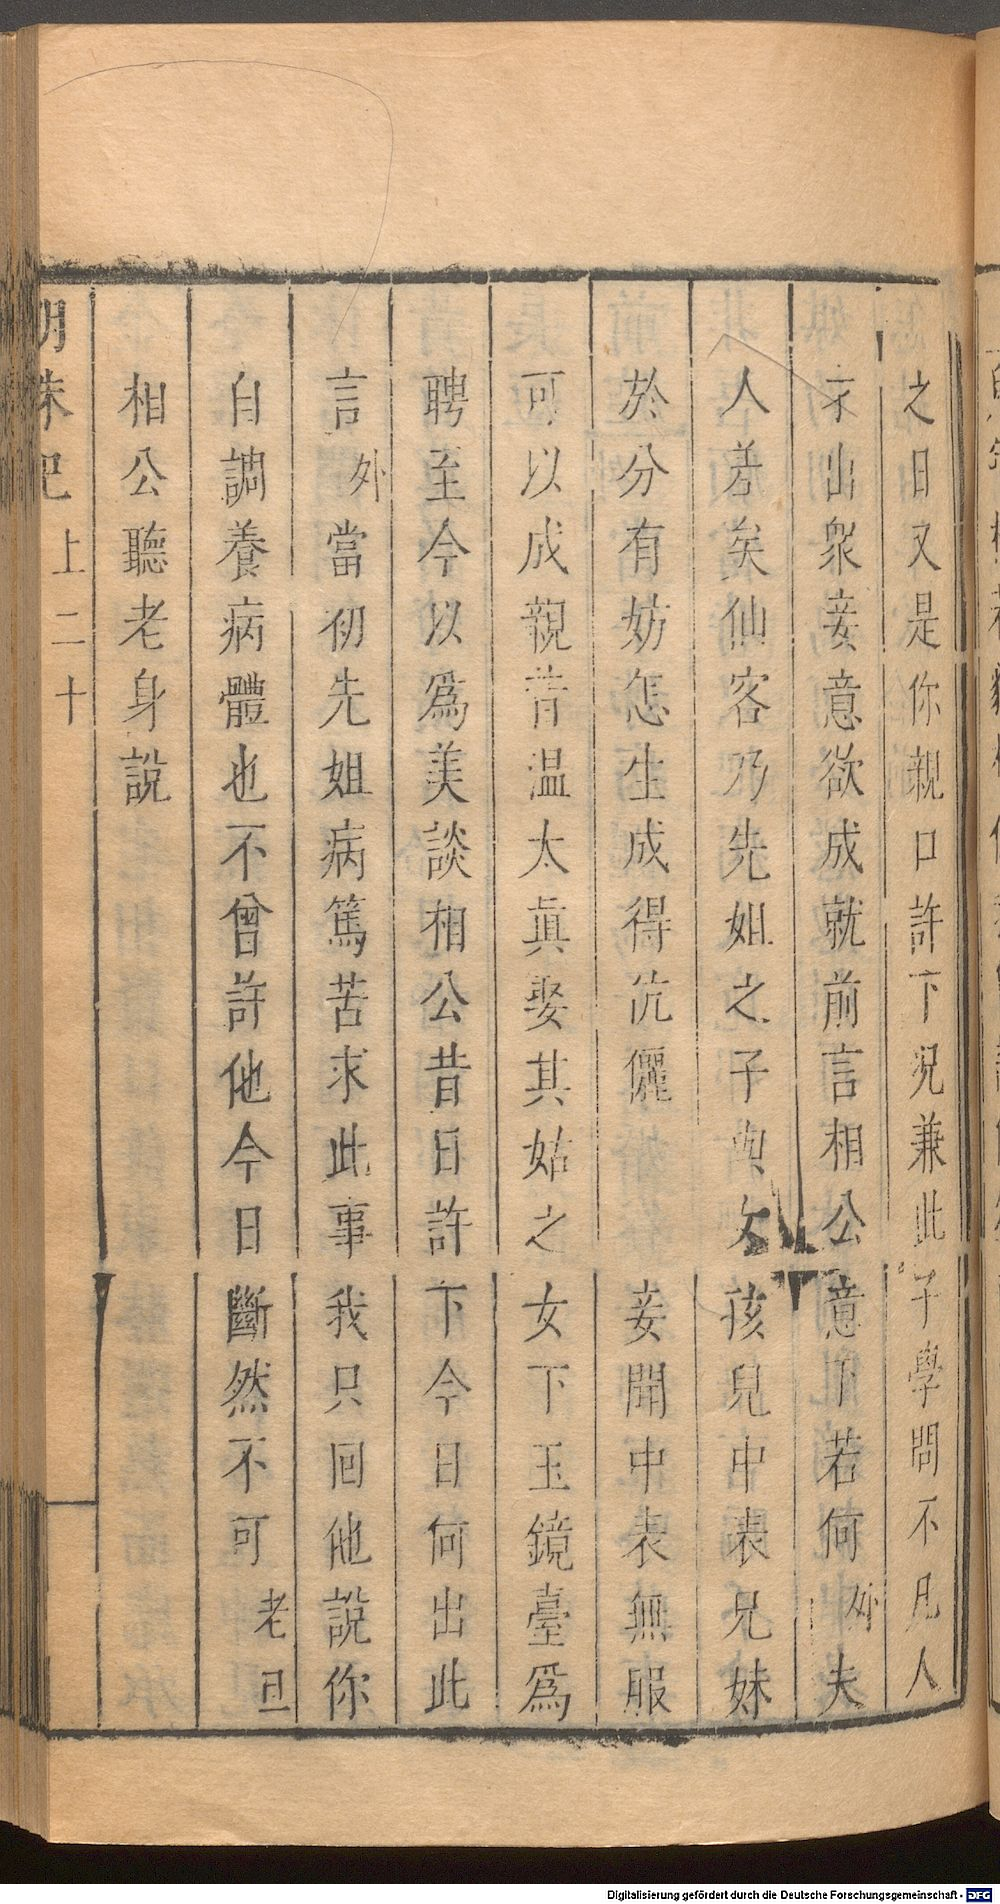 之日又是你親口許下况兼此子學問不凡人
才出衆妾意欲成就前言相公意下若何外夫
人差矣仙客乃先姐之子與女孩兒中表兄妹
於分有妨怎生成得伉儷妾聞中表無服
可以成親昔温太眞娶其姑之女下玉鏡臺爲
聘至今以爲美談相公昔日許下今日何出此
言外當初先姐病篤苦求此事我只回他說你
自調養病體也不曾許他今日斷然不可老旦
相公聽老身說
明珠記 上二十
Digitalisierung gefördert durch die Deutsche Forschungsgemeinschaft - DFG